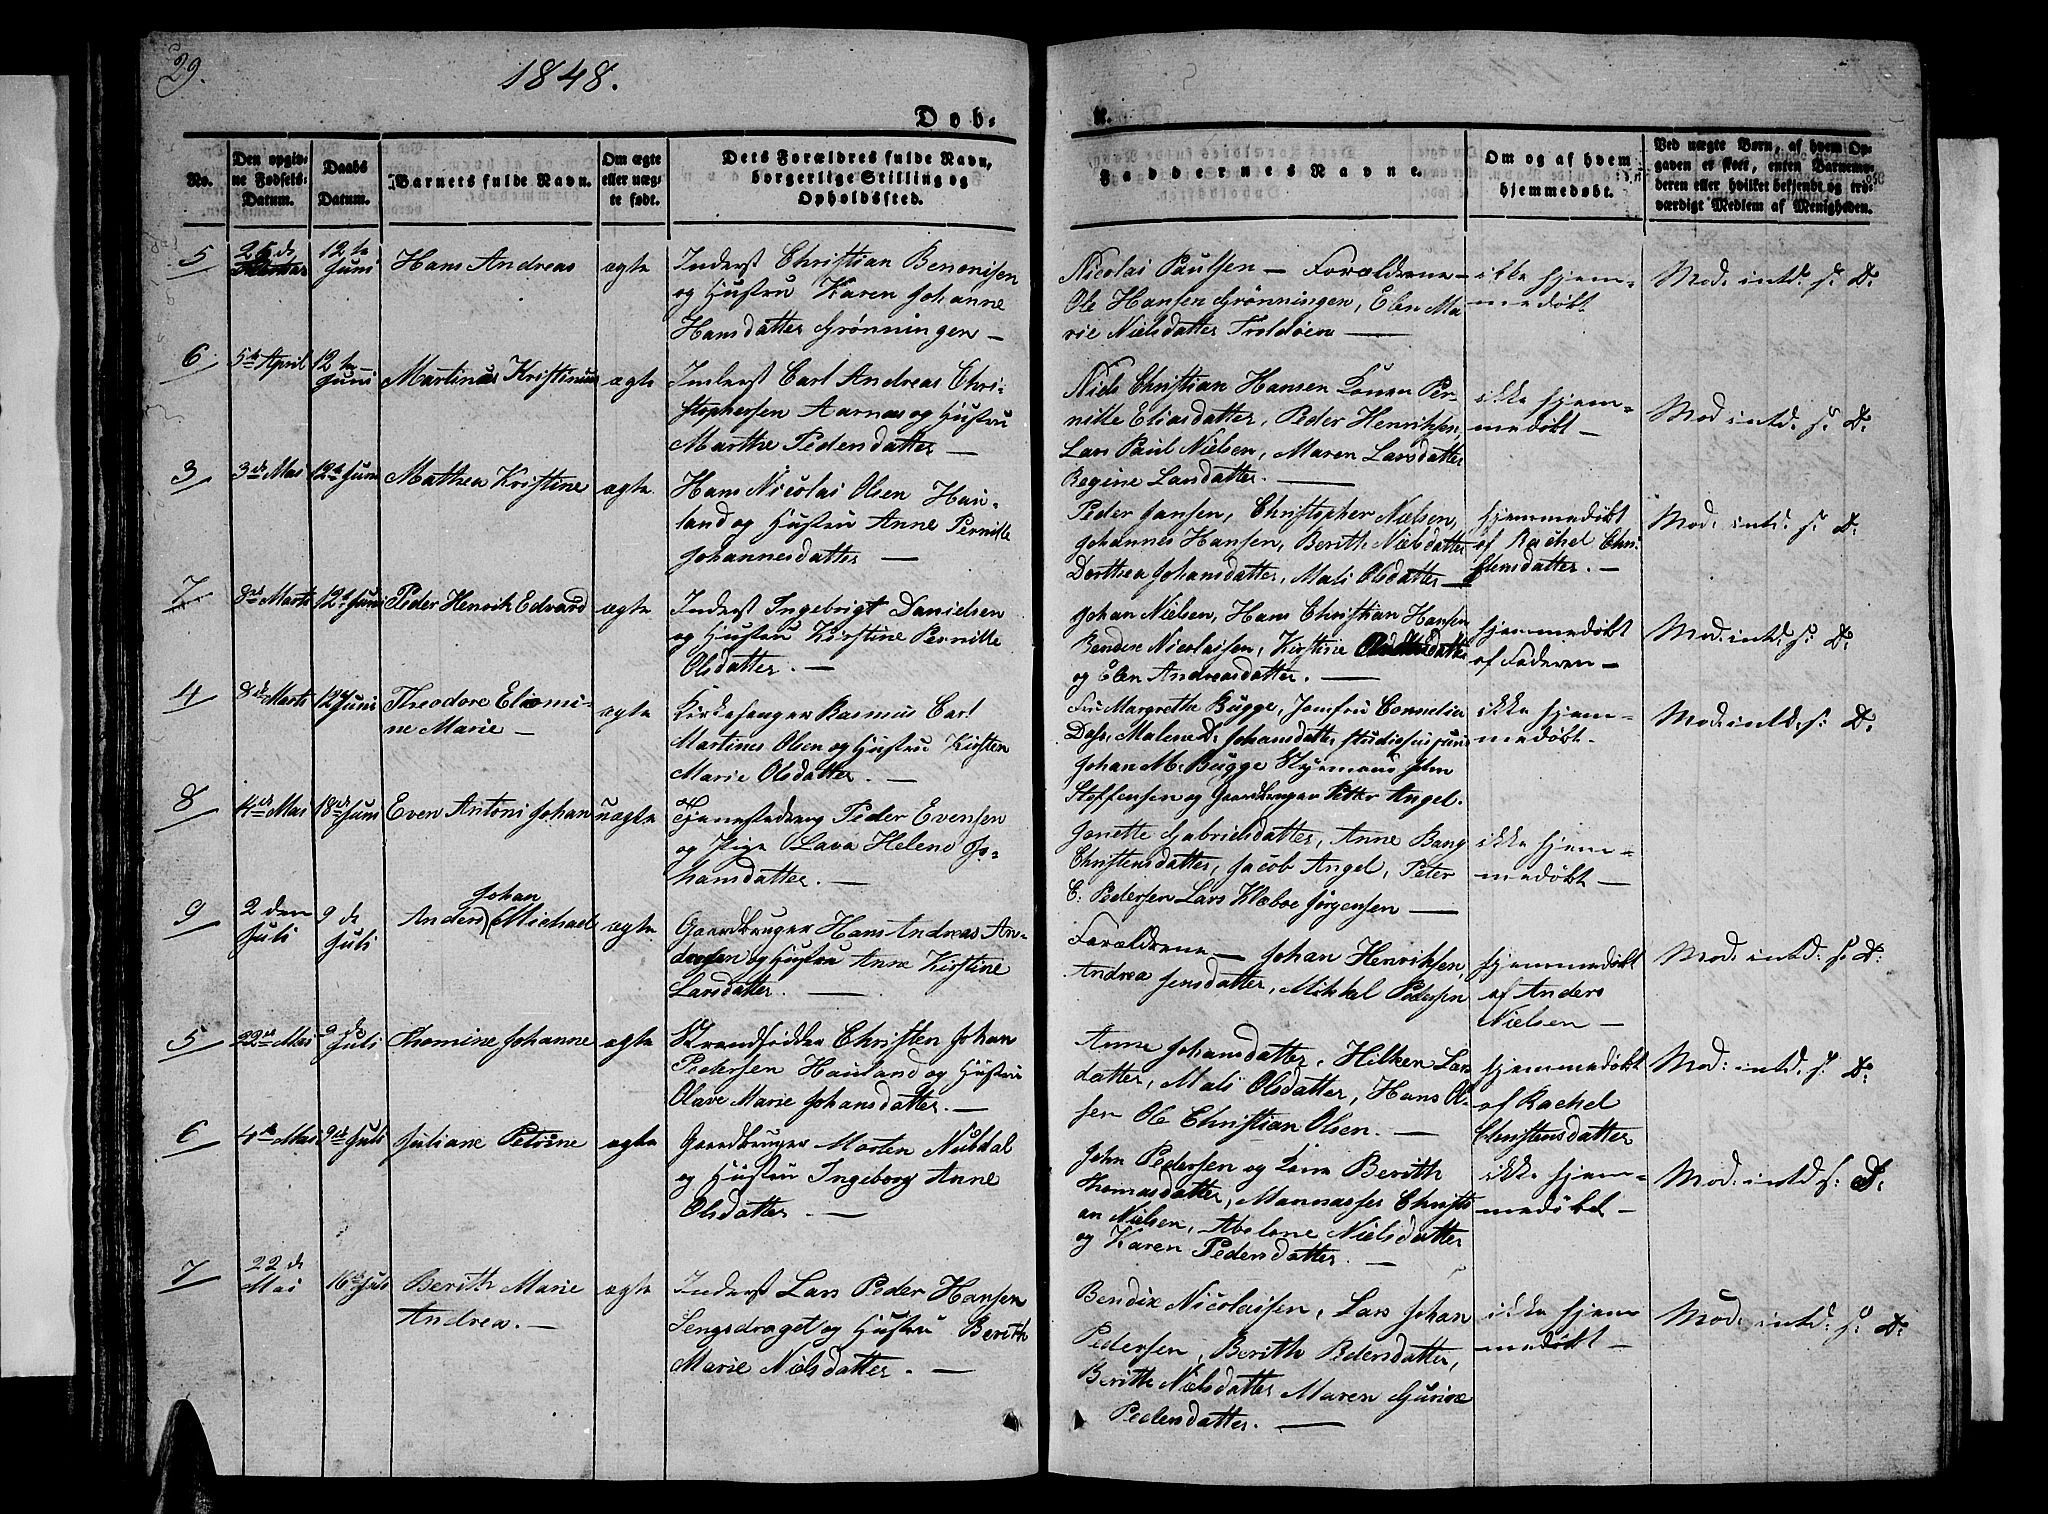 29.
1848.
Døb-
e.
No.
Den opgiv-
ne Fødsels-
Datum.
Daabs
Datum.
Barnets fulde Navn.
Om ægte
eller uæg-
te født.
Dets Forældres fulde Navn,
borgerlige Stilling og
Opholdssted.
Faddernes Navne.
Om og af hvem
hjemmedøbt.
Ved uægte Børn, af hvem Op-
gaven er skeet, enten Barnemo-
deren eller hvilket bekjendt og tro-
værdigt Medlem af Menigheden.
5
12te
Juni
Hans Andreas
ægte
Inderst Christian Benonisen
og Hustru Karen Johanne
Hansdatter Grønningen —
Nicolai Paulsen — Forældrene —
Ole Hansen Grønningen, Elen Ma
rie Nielsdatter Troldøen —
ikke hjem-
medøbt
Mod: intd: f: D:
6
5te April
12te
Juni
Martinus Kristinus
ægte
Inderst Carl Andreas Chri-
stophersen Aarnæs og Hustru
Marthe Pedersdatter —
Niels Christian Hansen Kone Per-
nitte Eliasdatter, Peder Henriksen,
Lars Paul Nielsen, Maren Larsdatter
Regine Larsdatter. —
ikke hjem-
medøbt —
Mod intd: f: D:
3
3de Mai
12te Juni
Mathea Kristine
ægte
Hans Nicolai Olsen Hau-
land og Hustru Anne Pernille
Johannesdatter —
Peder Jansen, Christopher Nielsen,
Johannes Hansen, Berith Nielsdatter
Dorthea Johansdatter, Mali Olsdatter —
hjemmedøbt
af Rachel Chri-
stensdatter. —
Mod: intd: f: D:
7
8de Marts
12te Juni
Peder Henrik Edvard
ægte
Inderst Ingebrigt Danielsen
og Hustru Kirstine Pernille
Olsdatter. —
Johan Nielsen, Hans Christian Hansen
Bendix Nicolaisen, Kirstine
og Elen Andreasdatter. —
hjemmedøbt
af Faderen —
Mod: intd: f: D:
4
8de Marts
12te Juni
Theodore Eliomi-
ne Marie —
ægte
Kirkesanger Rasmus Carl
Martines Olsen og Hustru Kirsten
Marie Olsdatter. —
Fru Margrethe Bugge, Jomfru Cornelia
Dass, Malene D. Johansdatter
Johan M. Bugge Styrmand John
Steffensen og Gaardbruger Petter Angel.
ikke hjem-
medøbt. —
Mod: intd: f: D:
8
4de Mai
18de Juni
Even Antoni Johan
uægte
Tjenestedreng Peder Evensen
og Pige Lava Helene Jo-
hansdatter. —
Janette Gabrielsdatter, Anne Bang
Christensdatter, Jacob Angel, Peter
C. Pedersen Lars Klæboe Jørgensen —
ikke hjem-
medøbt —
9
2 den
Juli
9 de
Juli
Johan
Anders Michael
ægte
Gaardbruger Hans Andreas An-
dersen og Hustru Anne Kirstine
Larsdatter. —
Forældrene — Johan Henriksen,
Andrea Jensdatter, Mikkel Pedersen
hjemmedøbt
af Anders
Nielsen —
Mod: intd: f: D:
5
22de Mai
9de
Juli
Thomine Johanne
ægte
Strandsidder Christen Johan
Pedersen Hauland og Hustru
Olave Marie Johansdatter. —
Anne Johansdatter, Hilken Lars
datter, Mali Olsdatter, Hans Ol-
sen Ole Christian Olsen. —
hjemmedøbt
af Rachel
Christensdatter
Mod: intd: f: D:
6
4de Mai
9de Juli
Juliane Petrine
ægte
Gaardbruger Morten Nubdal
og Hustru Ingeborg Anne
Olsdatter —
John Pedersen og Kone Berith
Thomasdatter, Mannasses Christi
an Nielsen, Abelone Nielsdatter
og Karen Pedersdatter. —
ikke hjem-
medøbt —
Mod: intd f: D:
7
22 de
Mai
16de Juli
Berith Marie
Andrea. —
ægte
Inderst Lars Peder Hansen
Sengsdraget og Hustru Berith
Marie Nielsdatter. —
Bendix Nicolaisen, Lars Johan
Pedersen, Berith Pedersdatter,
Berith Nielsdatter Maren Gurine
Pedersdatter. —
ikke hjem
medøbt —
Mod: intd: f: D: